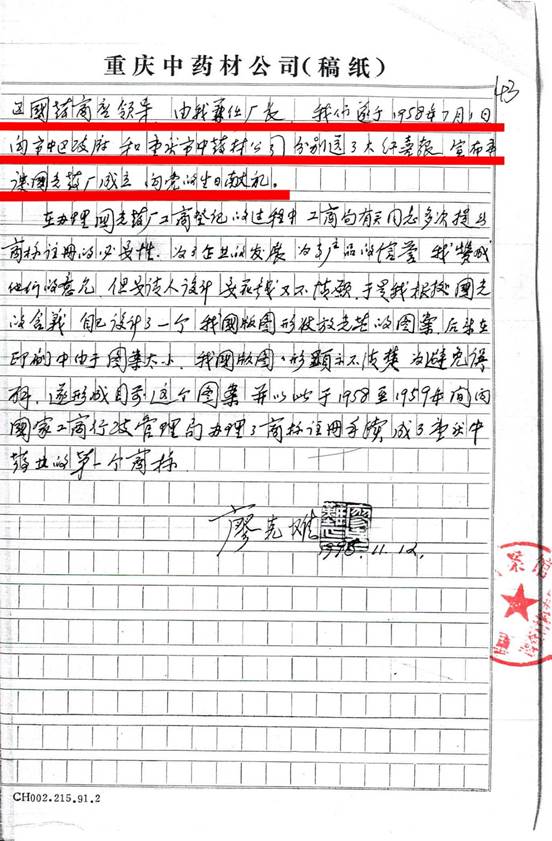 重庆中药材公司(稿纸)
43
区國药商店领导，由我兼任厂长，我们遂于1958年7月1日
向市中区政府和重庆市中药材公司分别送了大红喜报，宣布重
庆國光药厂成立，向党的生日献礼。
在办理國光药厂工商登记的过程中工商局有关同志多次提出
商标註册的必要性。为了企业的发展，为了产品的信誉，我赞成
他们的意见，但要请人设计要花钱又不情愿，于是我根据國光
的含義自己设计了一个我國版图形状放光芒的图案，后来在
印刷中由于图案太小，我國版图形顯示不清楚，为避免误
解，遂形成目前这个图案，并以此于1958至1959年间向
國家工商行政管理局办理了商标註册手續，成了重庆中
药业的第一个商标。
廖克难
1995.11.12.
CH002.215.91.2